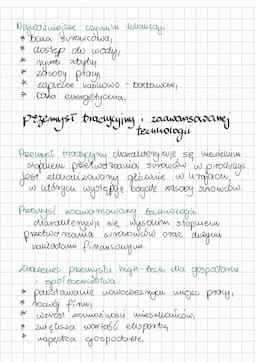 Najważniejsze czynniki lokalizacji:
* baza surowcowa,
* dostęp do wody,
* rynki zbytu,
* zasoby pracy,
* zaplecze naukowo - badawcze,
* baza energetyczna,
przemysł tradycyjny i zaawansowanej
technologii
Przemysł tradycyjny charakteryzuje się niewielkim
stopniem przetwarzania surowców w produkcji
jest zlokalizowany głównie w krajach,
w których występują bogate zasoby surowców.
Przemysł zaawansowanej technologii
charakteryzuje się wysokim stopniem
przetwarzania surowców oraz dużymi
nakładami finansowymi
Znaczenie przemysłu high-tech dla gospodarki
i społeczeństwa
* powstawanie nowoczesnych miejsc pracy,
* rozwój firm,
* wzrost zamożności mieszkańców,
* zwiększa wartość eksportu,
* napędza gospodarkę,